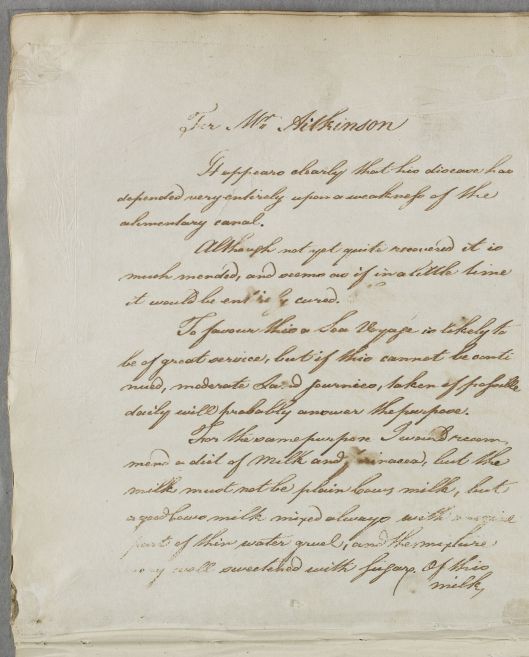 For Mr. Aitkinson
It appears clearly that his disease has
depended very entirely upon a weakness of the
alimentary canal.
Although not yet quite recovered it is
much mended, and seems as if in a little time
it would be entirely cured.
To favour this a Sea Voyage is likely to
be of great service, but if this cannot be conti
nued, moderate Land Journies, taken if possible
daily will probably answer the purpose.
For the same purpose I would recom,
mend a diet of Milk and farinacea, but the
milk must not be plain Cows milk, but
a good Cows milk mixed always with
parts of thin water gruel, and the mixture
very well sweetened with Sugar. Of this
milk,